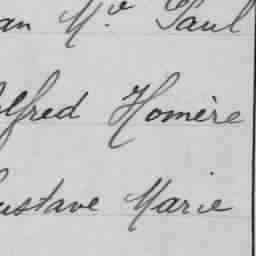 an M.e Paul
Alfred Homère
ustave Marie